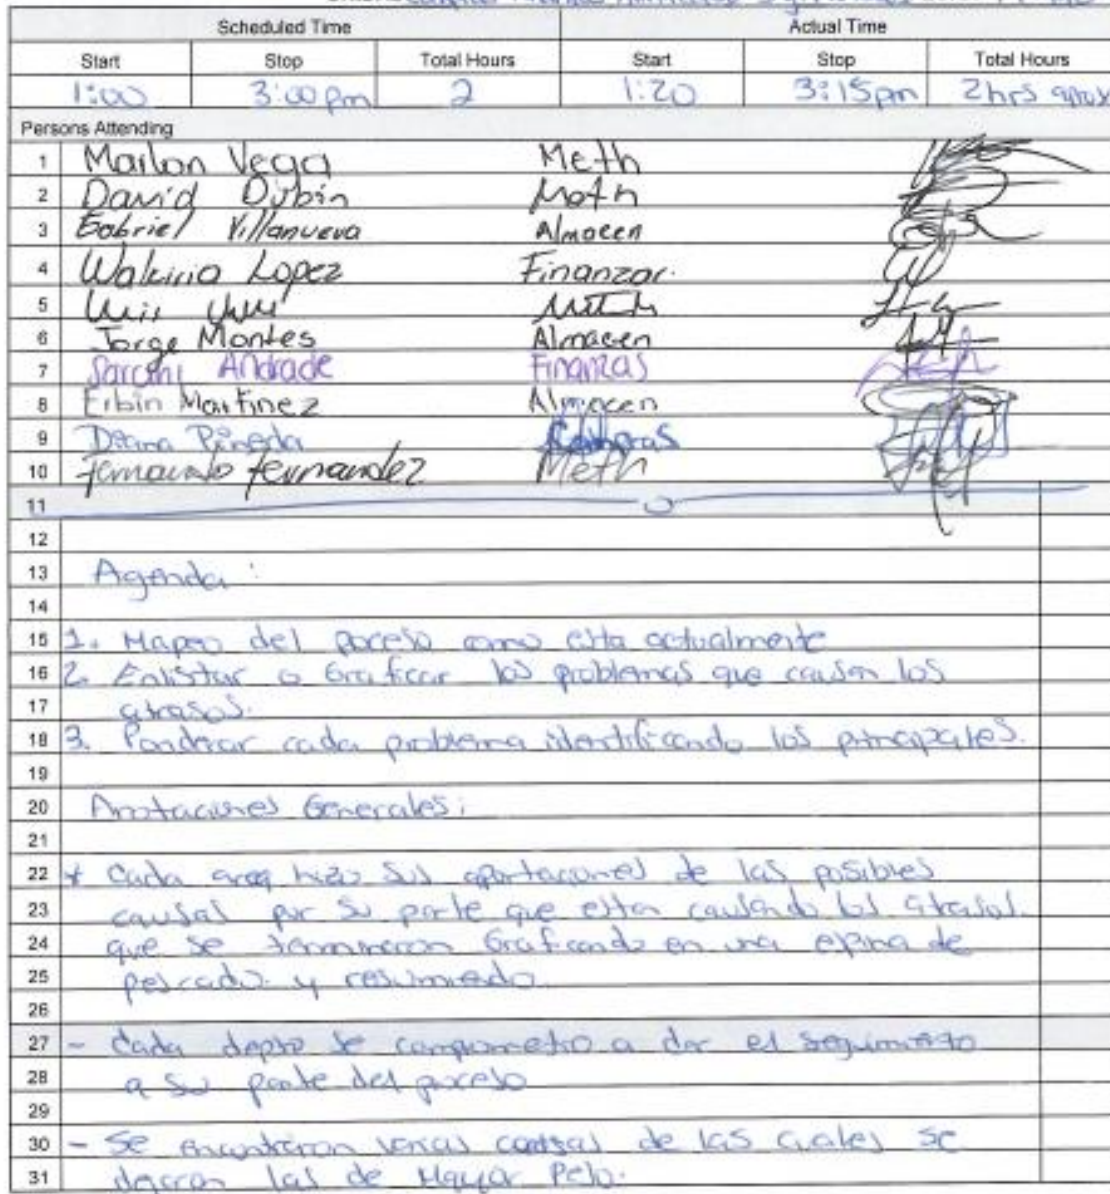 Scheduled Time Actual Time
Start Stop Total Hours Start Stop Total Hours
1:00 3:00 pm 2 1:20 3:15pm 2hrs aprox
Persons Attending
1 Marlon Vega Meth
2 David Dubin Meth
3 Gabriel Villanueva Almacen
4 Walkiria Lopez Finanzas.
5 Luis
6 Jorge Montes Almacen
7 Andrade Finanzas
8 Erbin Martinez Almacen
9 Diana Pineda Compras
10 Fernando Fernandez Meth
11
12
13 Agenda :
14
15 1. Mapeo del poceso como esta actualmente
16 2. Enlistar o Graficar los problemas que causan los
17 atrasos.
18 3. Ponderar cada problema identificando los principales.
19
20 Anotaciones Generales:
21
22 * Cada area hizo sus aportaciones de las posibles
23 causas por su parte que estan causando los atrasos.
24 que se terminaron Graficando en una espina de
25 pescado. y resumiedo
26
27 - Cada depto se comprometio a dar el seguimiento
28 a su parte del poceso
29
30 - Se encontraron varias causas de las cuales se
31 dejaron las de Mayor Peso.